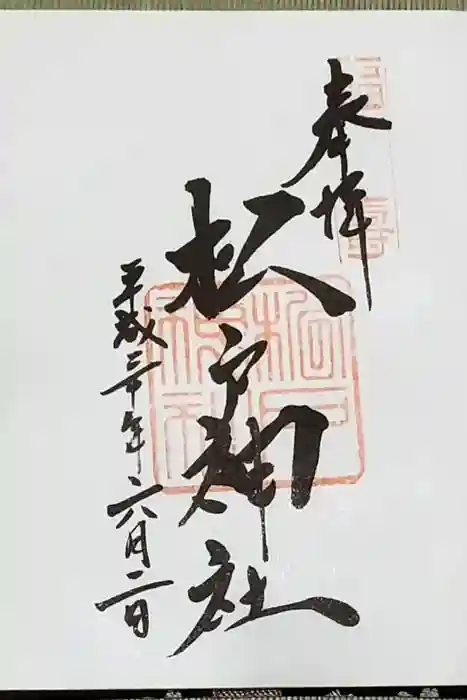 奉拝
松戸神社
平成三十年六月二日